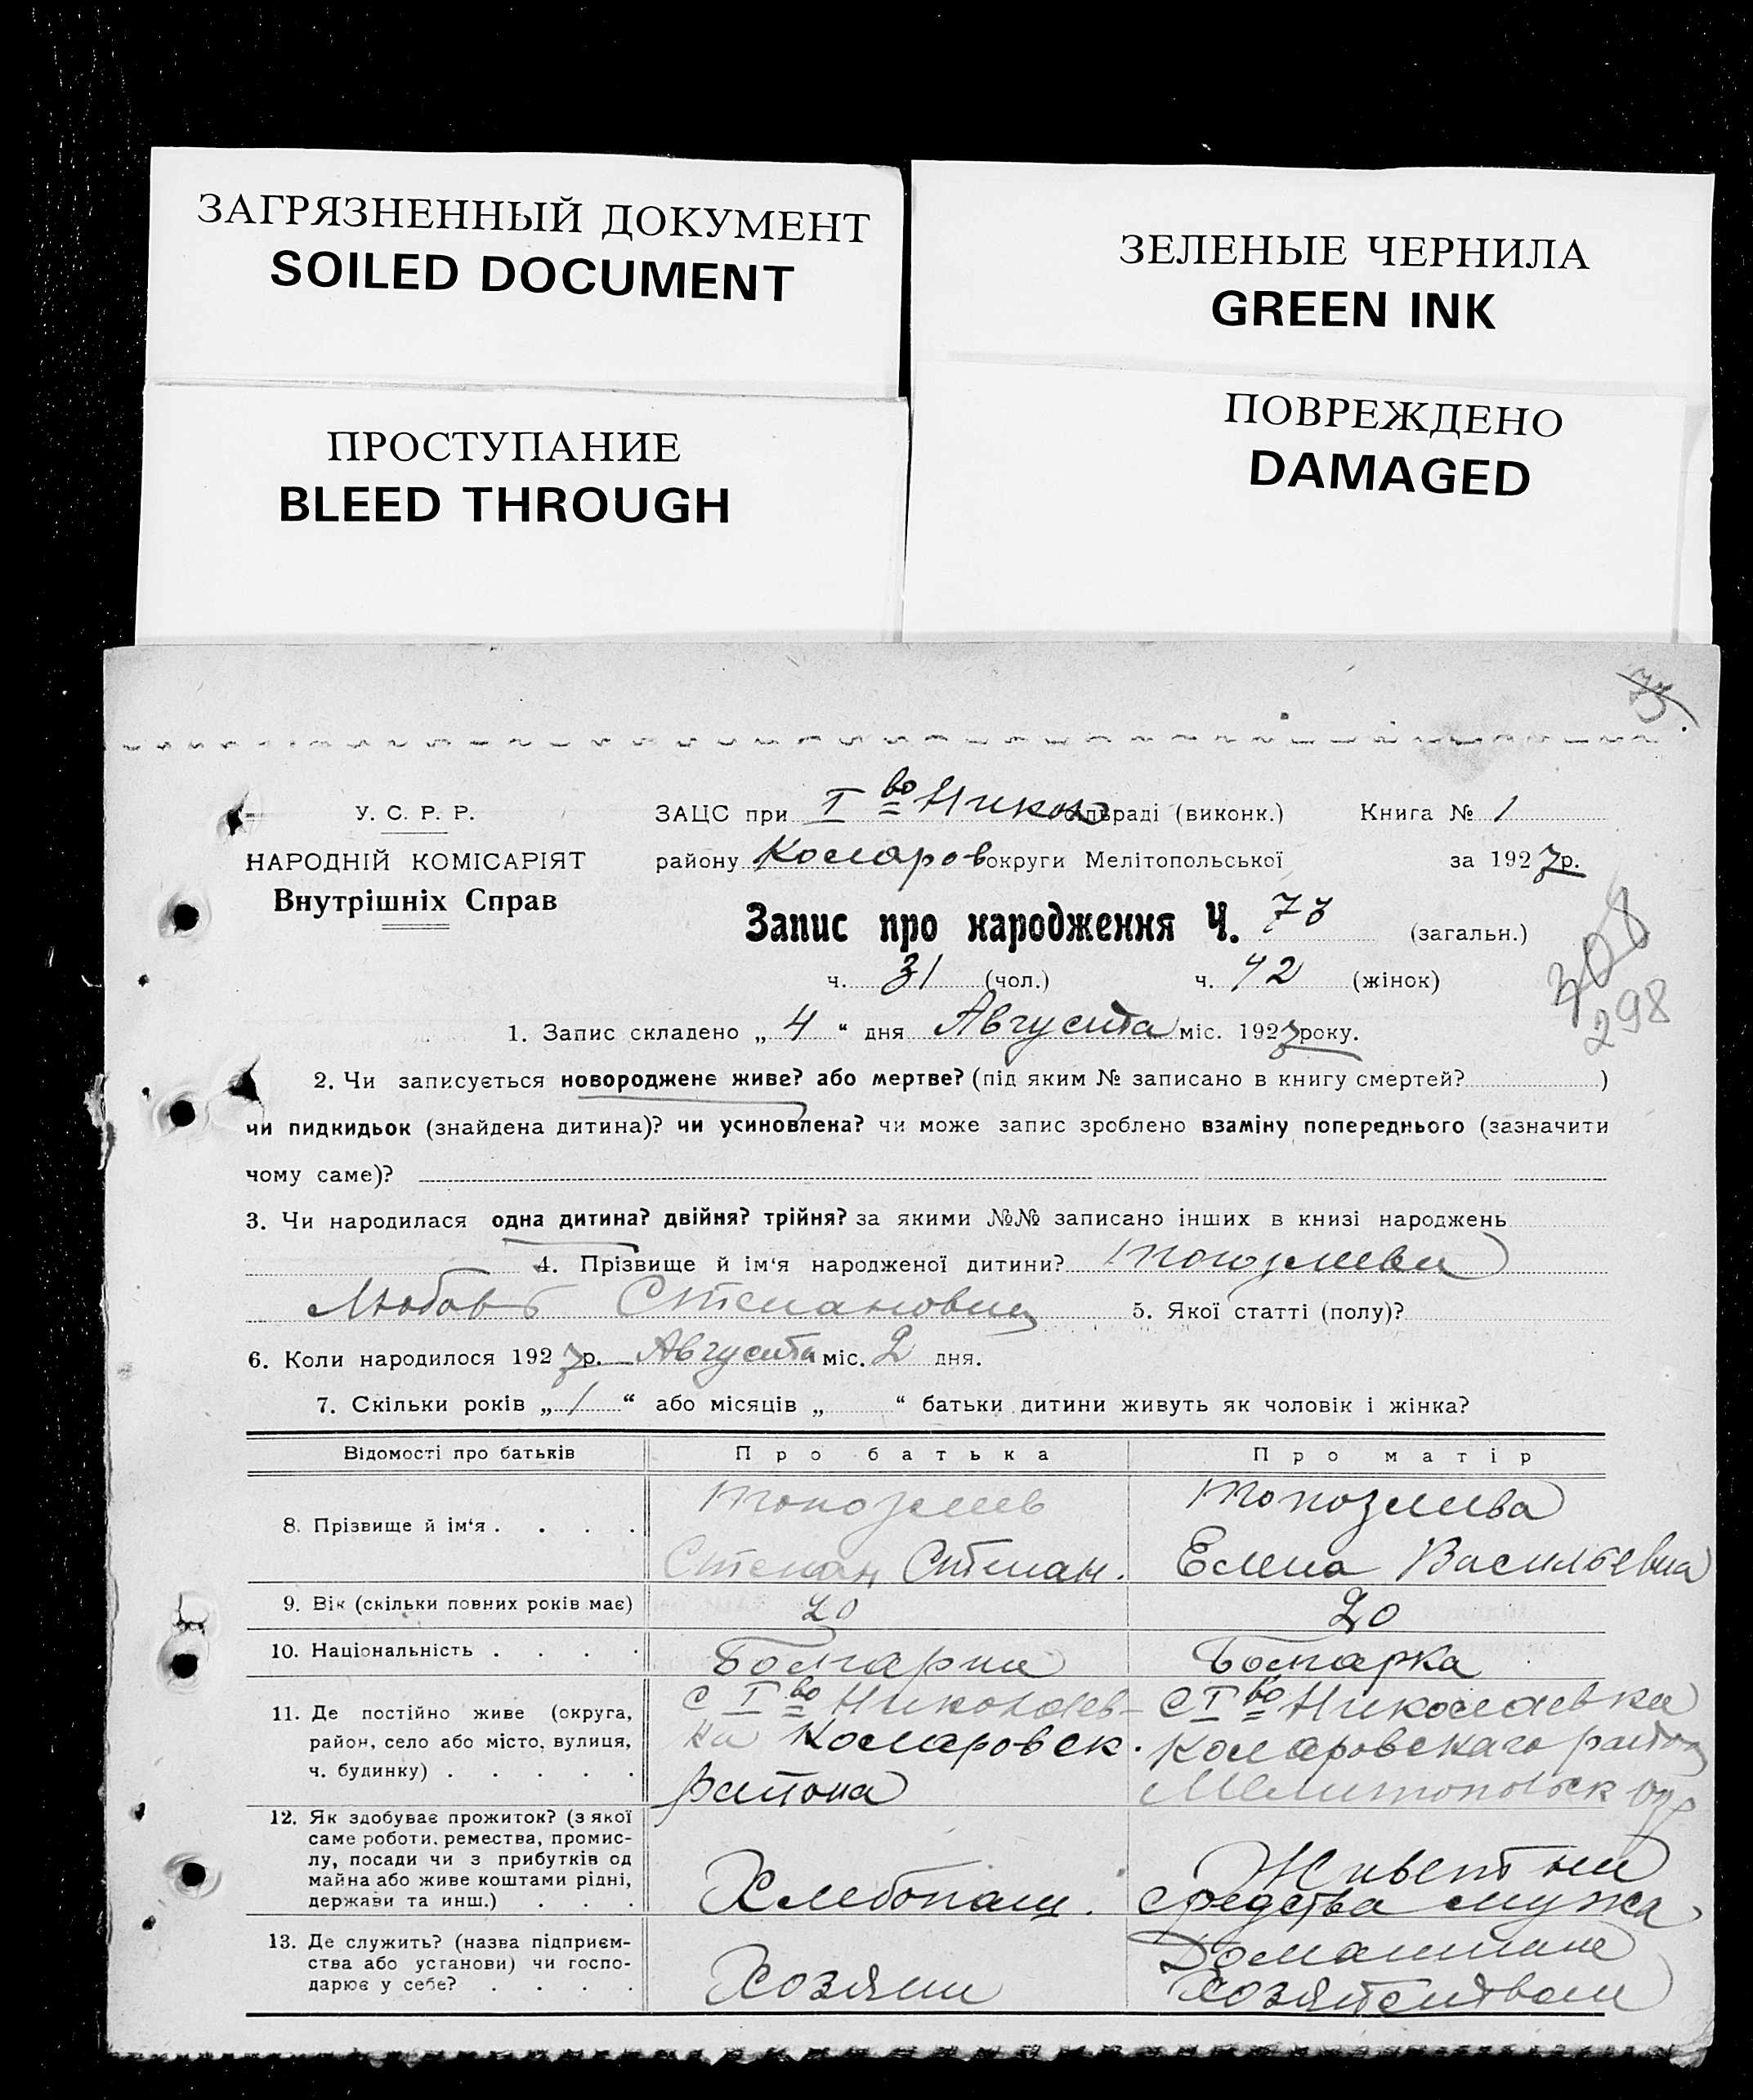 ЗАГРЯЗНЕННЫЙ ДОКУМЕНТ
SOILED DOCUMENT
ЗЕЛЕНЫЕ ЧЕРНИЛА
GREEN INK
ПРОСТУПАНИЕ
BLEED THROUGH
ПОВРЕЖДЕНО
DAMAGED
У. С. Р. Р.
НАРОДНІЙ КОМІСАРІЯТ
Внутрішніх Справ
ЗАЦС при I во Никол сільраді (виконк.) Книга № 1
району Комаров округи Мелітопольської за 1927 р.
Запис про народження Ч. 73 (загальн.)
ч. 31 (чол.) ч. 42 (жінок)
308
298
1. Запис складено „ 4 “ дня Августа міс. 1927 року.
2. Чи записується новороджене живе? або мертве? (під яким № записано в книгу смертей? )
чи пидкидьок (знайдена дитина)? чи усиновлена? чи може запис зроблено взаміну попереднього (зазначити
чому саме)?
3. Чи народилася одна дитина? двійня? трійня? за якими №№ записано інших в книзі народжень
4. Прізвище й ім‘я народженої дитини?
Любовь Степановна 5. Якої статті (полу)?
6. Коли народилося 1927 р. Августа міс. 2 дня.
7. Скільки років „ 1 “ або місяців „ “ батьки дитини живуть як чоловік і жінка?
Відомості про батьків Про батька Про матір
8. Прізвище й ім‘я . . . .
Степан Степан. Елена Васильевна
9. Вік (скільки повних років має) 20 20
10. Національність . . . . Болгарин Болгарка
11. Де постійно живе (округа, район, село або місто, вулиця, ч. будинку) . . . . .
с I во Николаев-
ка Комаровск.
района
с I во Николаевка
Комаровскаго района
Мелитопольск окр
12. Як здобуває прожиток? (з якої саме роботи, ремества, промислу, посади чи з прибутків од майна або живе коштами рідні, держави та инш.) . . .
Хлебопаш.
Живет на
средства мужа
13. Де служить? (назва підприємства або установи) чи господарює у себе? . . . .
Хозяин
Домашнине
хозяйством